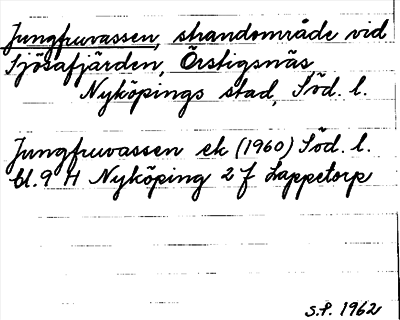 Jungfruvassen, strandområde vid
Sjösafjärden, Örstigsnäs
Nyköpings stad, Söd. l.
Jungfruvassen ek (1960) Söd. l.
bl. 9 H Nyköping 2 f Lappetorp
S.P. 1962